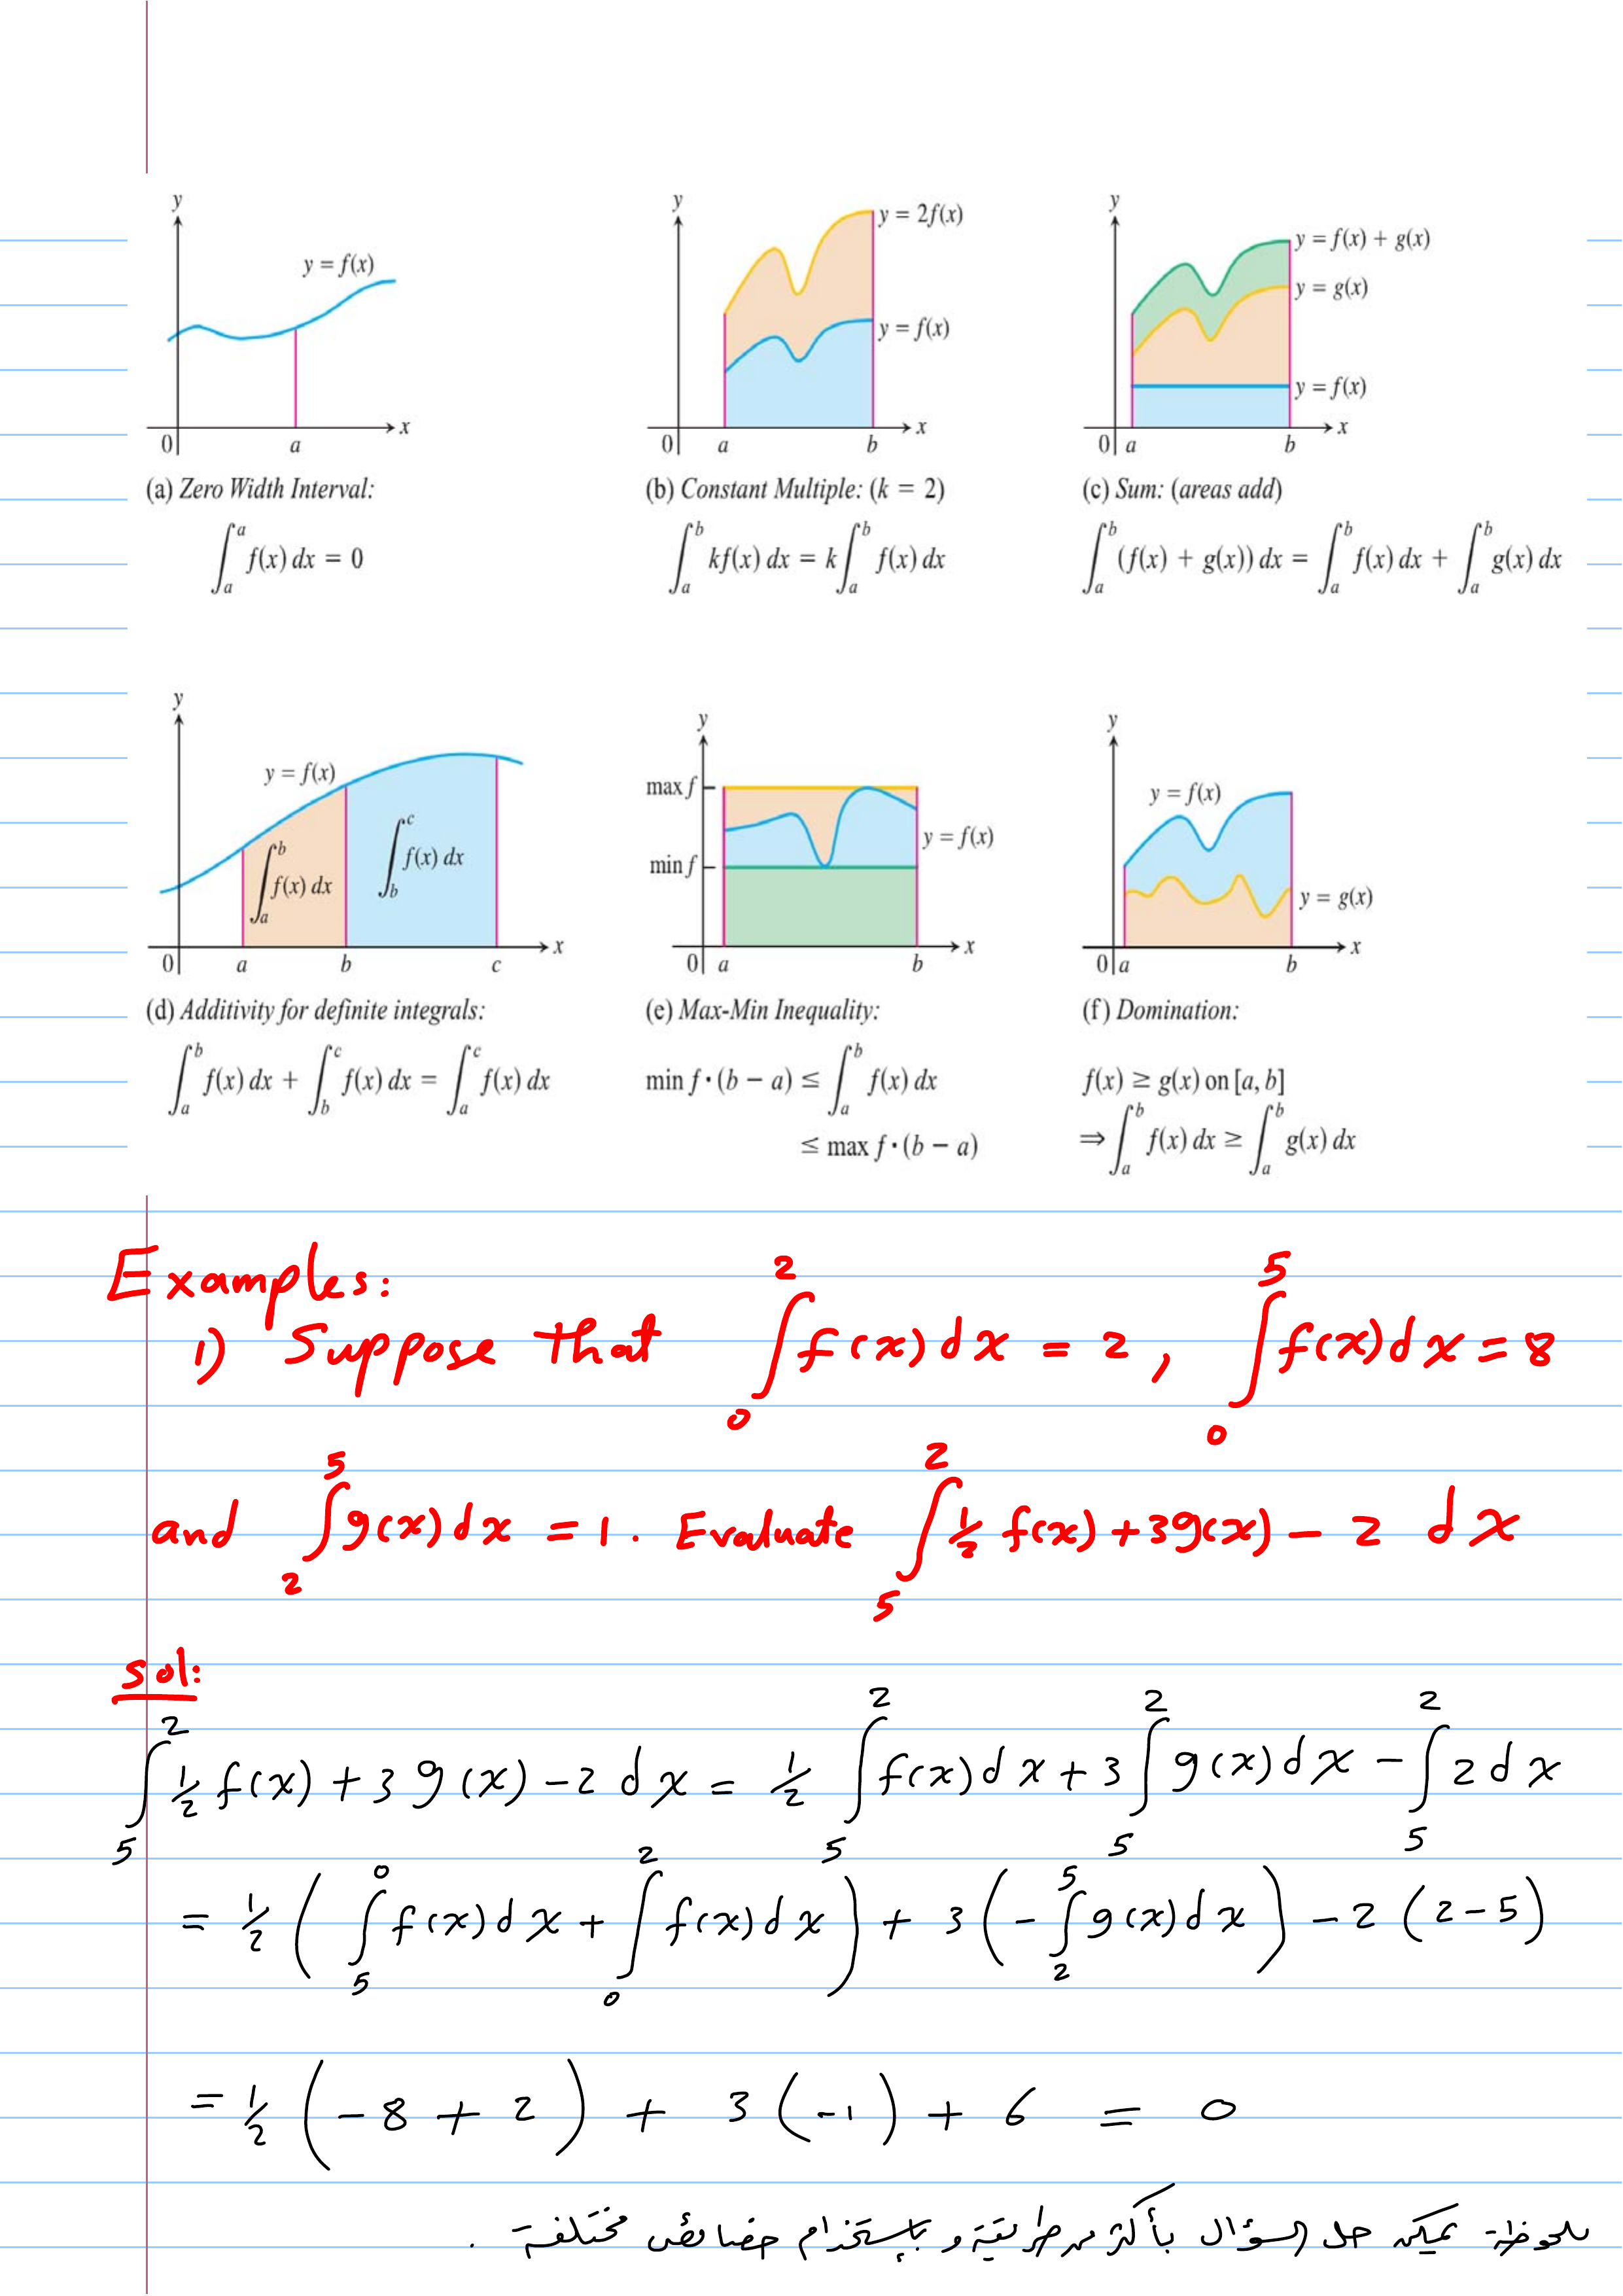 y
y = f(x)
0 a x
(a) Zero Width Interval:
∫_a^a f(x) dx = 0
y
y = 2f(x)
y = f(x)
0 a b x
(b) Constant Multiple: (k = 2)
∫_a^b kf(x) dx = k ∫_a^b f(x) dx
y
y = f(x) + g(x)
y = g(x)
y = f(x)
0 a b x
(c) Sum: (areas add)
∫_a^b (f(x) + g(x)) dx = ∫_a^b f(x) dx + ∫_a^b g(x) dx
y
y = f(x)
∫_a^b f(x) dx
∫_b^c f(x) dx
0 a b c x
(d) Additivity for definite integrals:
∫_a^b f(x) dx + ∫_b^c f(x) dx = ∫_a^c f(x) dx
y
max f
y = f(x)
min f
0 a b x
(e) Max-Min Inequality:
min f · (b − a) ≤ ∫_a^b f(x) dx
≤ max f · (b − a)
y
y = f(x)
y = g(x)
0 a b x
(f) Domination:
f(x) ≥ g(x) on [a, b]
⇒ ∫_a^b f(x) dx ≥ ∫_a^b g(x) dx
Examples:
1) Suppose that ∫_0^2 f(x) dx = 2, ∫_0^5 f(x) dx = 8
and ∫_2^5 g(x) dx = 1. Evaluate ∫_5^2 ½ f(x) + 3g(x) − 2 dx
sol:
∫_5^2 ½ f(x) + 3 g(x) − 2 dx = ½ ∫_5^2 f(x) dx + 3 ∫_5^2 g(x) dx − ∫_5^2 2 dx
= ½ ( ∫_5^0 f(x) dx + ∫_0^2 f(x) dx ) + 3 ( − ∫_2^5 g(x) dx ) − 2 (2 − 5)
= ½ ( −8 + 2 ) + 3 (−1) + 6 = 0
ملحوظة يمكن حل السؤال بأكثر من طريقة وبإستخدام خصائص مختلفة .